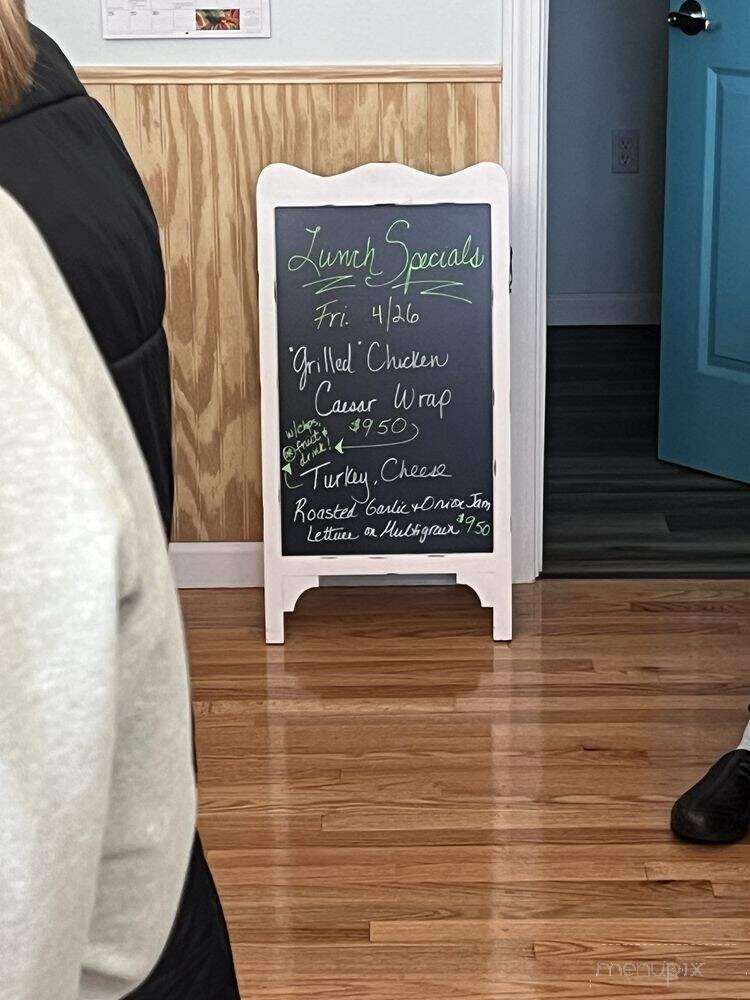 Lunch Specials
Fri. 4/26
"Grilled" Chicken
Caesar Wrap
$9 50
w/chips,
fruit &
drink!
Turkey, Cheese
Roasted Garlic + Onion Jam
Lettuce on Multigrain $9 50
menupix